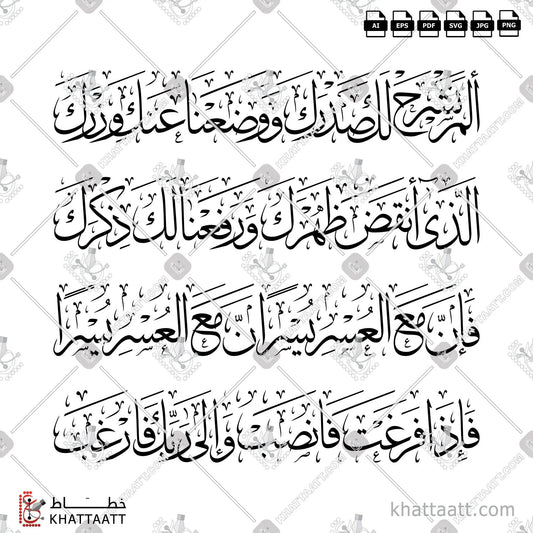 AI EPS PDF SVG JPG PNG
ألم نشرح لك صدرك ووضعنا عنك وزرك
الذي أنقض ظهرك ورفعنا لك ذكرك
فإن مع العسر يسرا إن مع العسر يسرا
فإذا فرغت فانصب وإلى ربك فارغب
خطاط
KHATTAATT
khattaatt.com